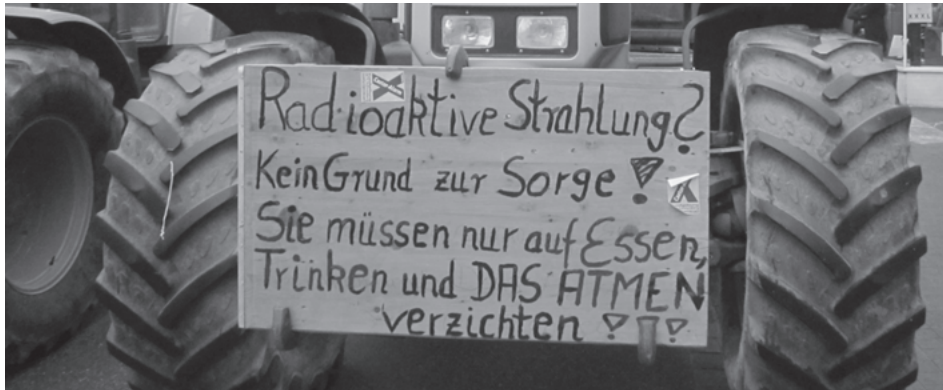 Radioaktive Strahlung?
Kein Grund zur Sorge!
Sie müssen nur auf Essen,
Trinken und DAS ATMEN
verzichten !!!